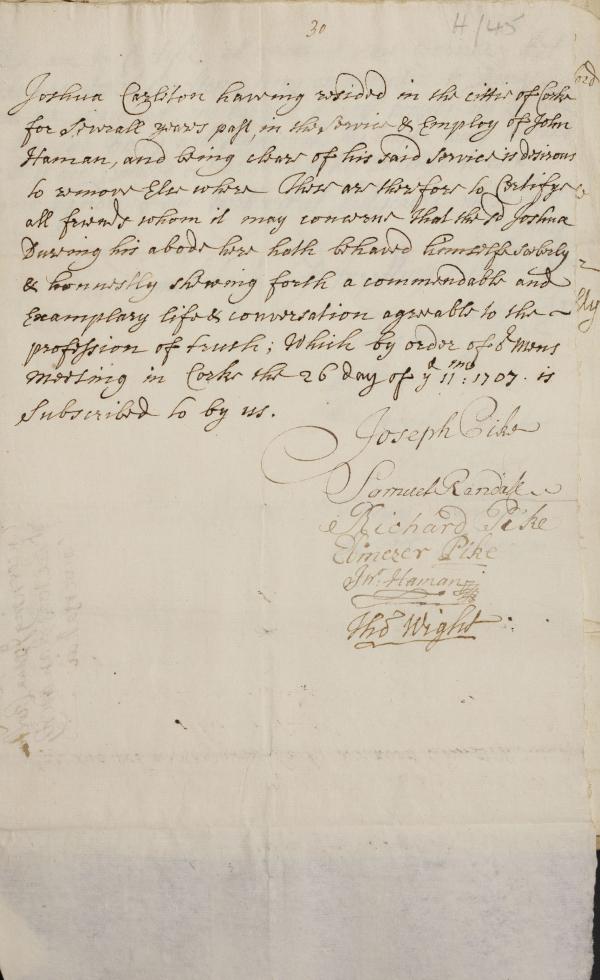 30
H/45
Joshua Carliton haveing resided in the cittie of Corke
for Severall years past, in the Service & Employ of John
Haman, and being cleare of his said Service is desirous
to remove Elsewhere These are therefore to Certifye
all friends whom it may concerne that the sd Joshua
Dureing his abode here hath behaved himselfe soberly
& honnestly shewing forth a commendable and
Examplary life & conversation agreable to the ~
profession of truth; Which by order of or mens
Meeting in Corke the 26 day of ye 11mo: 1707. is
Subscribed to by us.
Joseph Pike
Samuel Randall
Richard Pike
Ebinezer Pike
Jno. Haman
Tho Wight